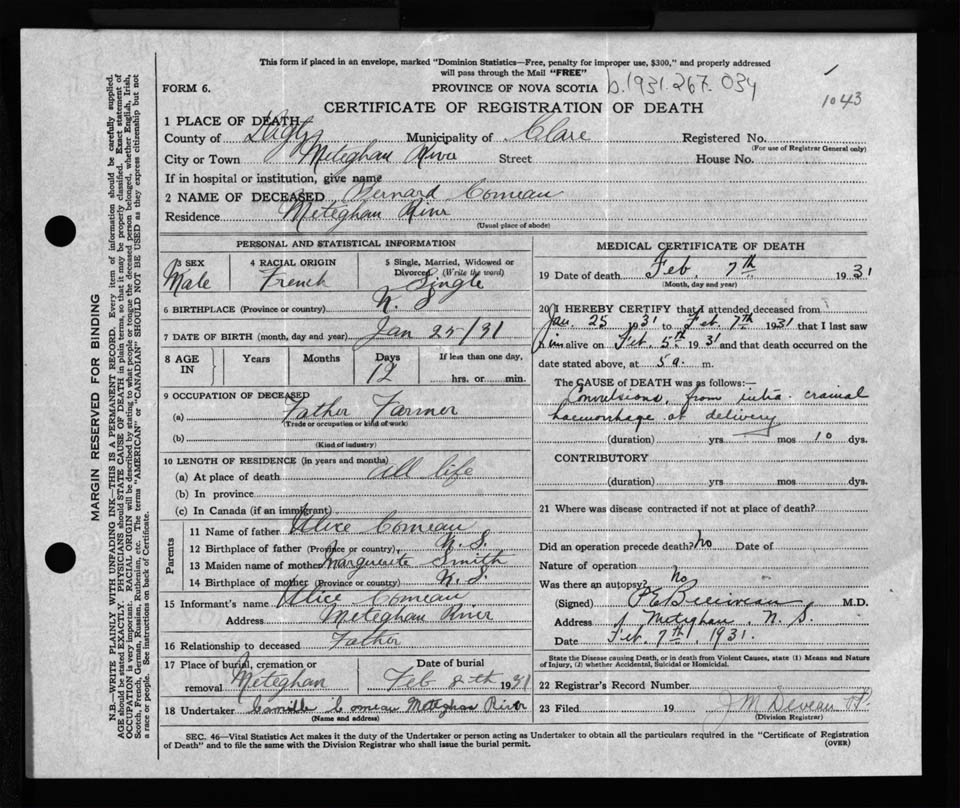 This form if placed in an envelope, marked "Dominion Statistics—Free, penalty for improper use, $300," and properly addressed
will pass through the Mail "FREE"
FORM 6.
PROVINCE OF NOVA SCOTIA
b.1931.267.034
1043
CERTIFICATE OF REGISTRATION OF DEATH
1 PLACE OF DEATH
County of Digby Municipality of Clare Registered No.
(For use of Registrar General only)
City or Town Meteghan River Street House No.
If in hospital or institution, give name
2 NAME OF DECEASED Bernard Comeau
Residence Meteghan River
(Usual place of abode)
PERSONAL AND STATISTICAL INFORMATION
3 SEX 4 RACIAL ORIGIN 5 Single, Married, Widowed or
Divorced (Write the word)
Male French Single
6 BIRTHPLACE (Province or country) N. S
7 DATE OF BIRTH (month, day and year) Jan 25/31
8 AGE IN Years Months Days If less than one day,
12 hrs. or min.
9 OCCUPATION OF DECEASED
(a) Father Farmer
(Trade or occupation or kind of work)
(b)
(Kind of industry)
10 LENGTH OF RESIDENCE (in years and months)
(a) At place of death all life
(b) In province
(c) In Canada (if an immigrant)
Parents
11 Name of father Alice Comeau
12 Birthplace of father (Province or country) N. S.
13 Maiden name of mother Marguerite Smith
14 Birthplace of mother (Province or country) N. S.
15 Informant's name Alice Comeau
Address Meteghan River
16 Relationship to deceased Father
17 Place of burial, cremation or Date of burial
removal Meteghan Feb 8th 1931
18 Undertaker Camille Comeau Meteghan River
(Name and address)
MEDICAL CERTIFICATE OF DEATH
19 Date of death Feb. 7th 1931
(Month, day and year)
20 I HEREBY CERTIFY that I attended deceased from
Jan. 25 1931 to Feb. 7th 1931 that I last saw
him alive on Feb. 5th 1931 and that death occurred on the
date stated above, at 5 a. m.
The CAUSE of DEATH was as follows:—
Convulsions, from intra-cranial
haemorrhage at delivery
(duration) yrs mos 10 dys.
CONTRIBUTORY
(duration) yrs. mos. dys.
21 Where was disease contracted if not at place of death?
Did an operation precede death? No Date of
Nature of operation
Was there an autopsy? No
(Signed) M.D.
Address Meteghan, N. S.
Date Feb. 7th, 1931.
State the Disease causing Death, or in death from Violent Causes, state (1) Means and Nature
of Injury, (2) whether Accidental, Suicidal or Homicidal.
22 Registrar's Record Number
23 Filed 19 J M Deveau
(Division Registrar)
SEC. 46—Vital Statistics Act makes it the duty of the Undertaker or person acting as Undertaker to obtain all the particulars required in the "Certificate of Registration
of Death" and to file the same with the Division Registrar who shall issue the burial permit.
(OVER)
MARGIN RESERVED FOR BINDING
N.B.—WRITE PLAINLY WITH UNFADING INK—THIS IS A PERMANENT RECORD. Every item of information should be carefully supplied.
AGE should be stated EXACTLY. PHYSICIANS should STATE CAUSE OF DEATH in plain terms, so that it may be properly classified. Exact statement of
OCCUPATION is very important. RACIAL ORIGIN will be described by stating to what people or race the deceased person belonged, whether English, Irish,
Scotch, French, German, Russian, Ruthenian, etc. The terms "AMERICAN" or "CANADIAN" SHOULD NOT BE USED as they express citizenship but not
a race or people. See instructions on back of Certificate.